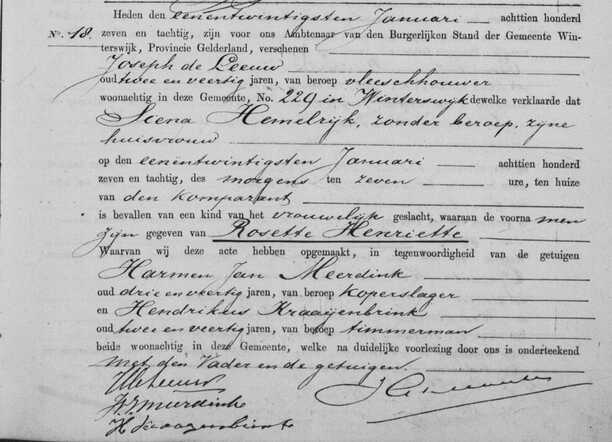 Heden den eenentwintigsten Januari achttien honderd
No. 18. zeven en tachtig, zijn voor ons Ambtenaar van den Burgerlijken Stand der Gemeente Win-
terswijk, Provincie Gelderland, verschenen
Joseph de Leeuw
oud twee en veertig jaren, van beroep vleeschhouwer
woonachtig in deze Gemeente, No. 229 in Winterswijk dewelke verklaarde dat
Hemelrijk, zonder beroep, zijne
huisvrouw
op den eenentwintigsten Januari achttien honderd
zeven en tachtig, des morgens ten zeven ure, ten huize
van den komparant
is bevallen van een kind van het vrouwelijk geslacht, waaraan de voorna men
zijn gegeven van Rosette Henriette
Waarvan wij deze acte hebben opgemaakt, in tegenwoordigheid van de getuigen
Harmen Jan Meerdink
oud drie en veertig jaren, van beroep koperslager
en Hendrikus Kraaijenbrink
oud twee en veertig jaren, van beroep timmerman
beide woonachtig in deze Gemeente, welke na duidelijke voorlezing door ons is onderteekend
met den Vader en de getuigen.